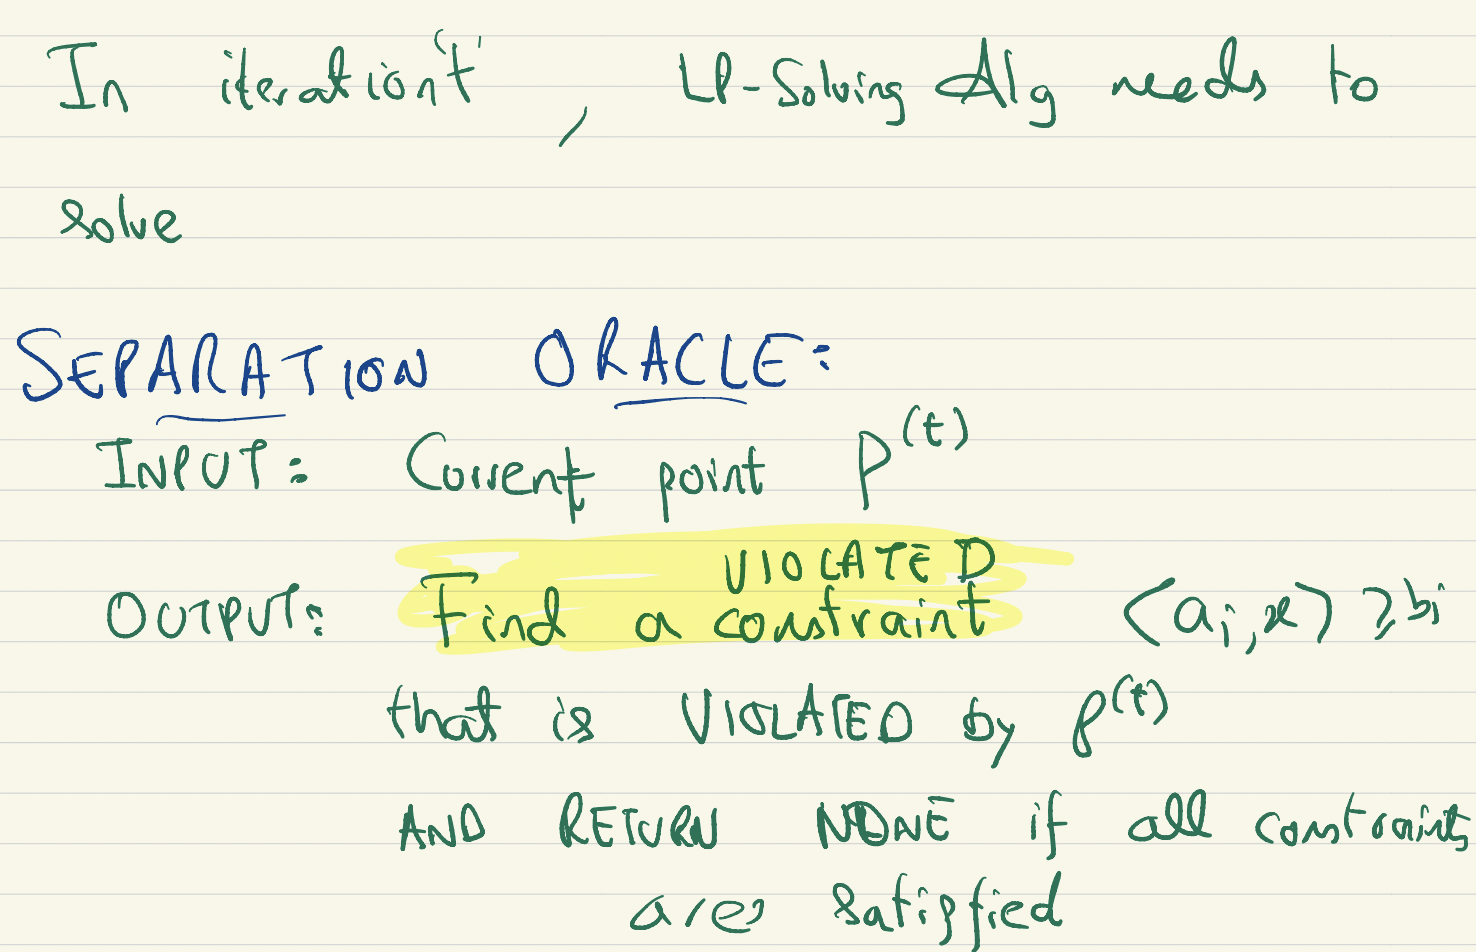 In iteration 't', LP-Solving Alg needs to
solve
SEPARATION ORACLE:
INPUT: Current point P^(t)
VIOLATED
OUTPUT: Find a constraint ⟨a_i, x⟩ ≥ b_i
that is VIOLATED by p^(t)
AND RETURN NONE if all constraints
are satisfied